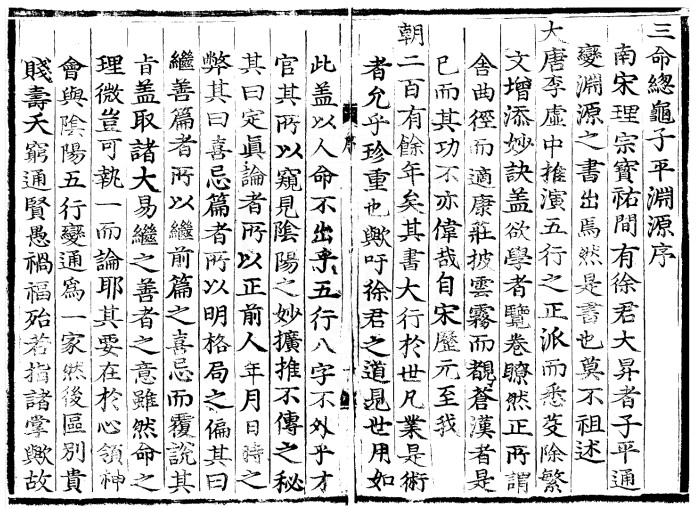 三命總龜子平淵源序
南宋理宗寶祐間有徐君大昇者子平通
變淵源之書出焉然是書也莫不祖述
大唐李虛中推演五行之正派而悉芟除繁
文增添妙訣盖欲學者覽卷瞭然正所謂
舍曲徑而適康莊披雲霧而覩蒼漢者是
已而其功不亦偉哉自宋歷元至我
朝二百有餘年矣其書大行於世凡業是術
者允乎珍重也歟吁徐君之道見世用如
序
此盖以人命不出乎五行八字不外乎才
官其所以窺見陰陽之妙擴推不傳之秘
其曰定眞論者所以正前人年月日時之
弊其曰喜忌篇者所以明格局之偏其曰
繼善篇者所以繼前篇之喜忌而覆說其
旨盖取諸大易繼之善者之意雖然命之
理微豈可執一而論耶其要在於心領神
會與陰陽五行變通爲一家然後區別貴
賤壽夭窮通賢愚禍福殆若指諸掌歟故